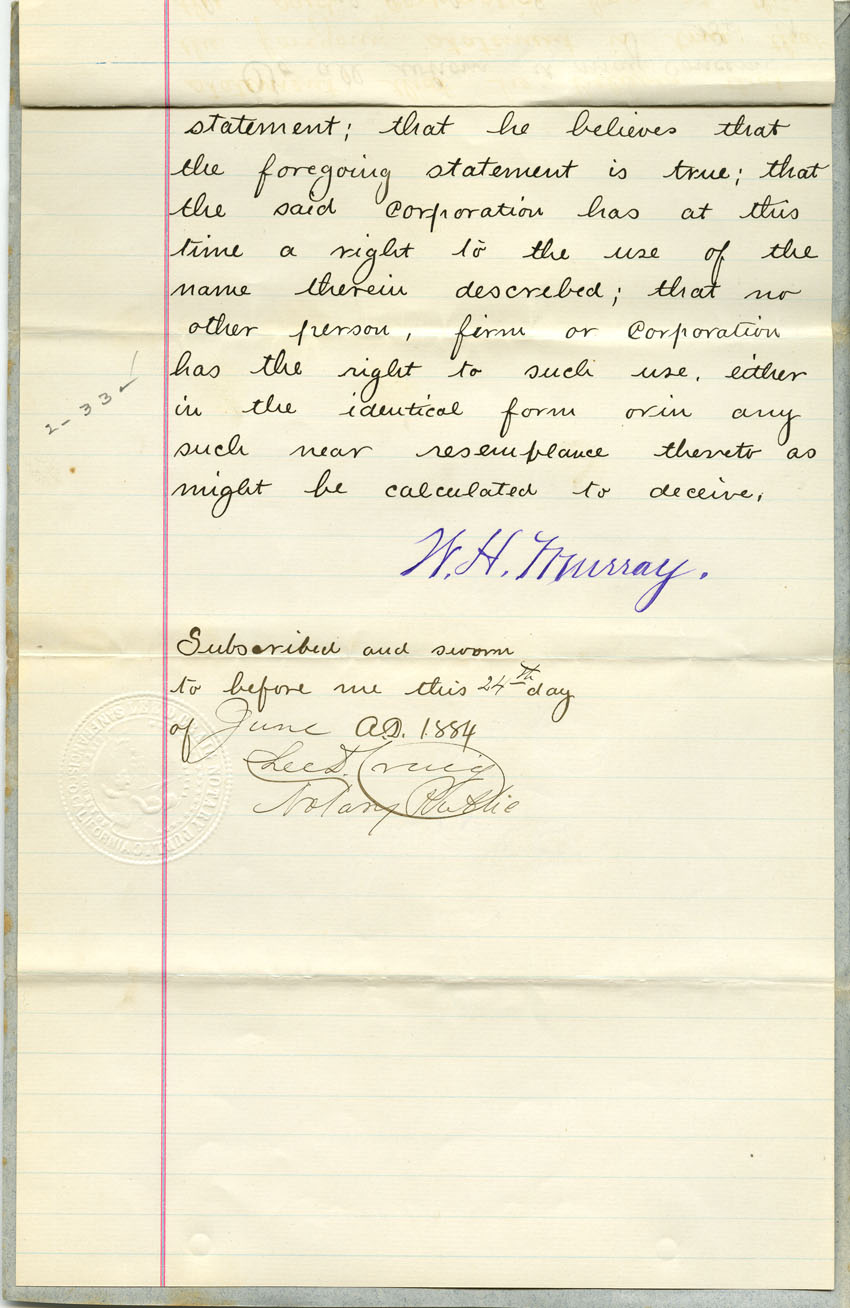 statement; that he believes that
the foregoing statement is true; that
the said Corporation has at this
time a right to the use of the
name therein described; that no
other person, firm or Corporation
has the right to such use, either
in the identical form or in any
such near resemblance thereto as
might be calculated to deceive.
2-33 ✓
W. H. Murray.
Subscribed and sworn
to before me this 24th day
of June A.D. 1884
Lee D. Craig
Notary Public
NOTARY PUBLIC
CALIFORNIA